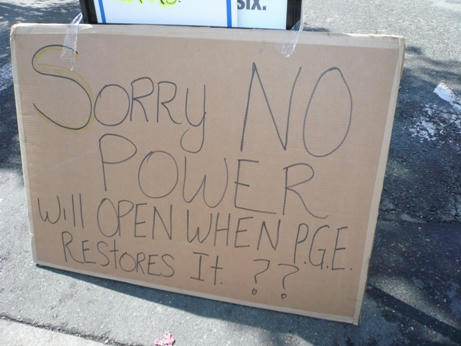 SIX.
SORRY NO
POWER
Will OPEN WHEN P.G.E.
RESTORES It. ??